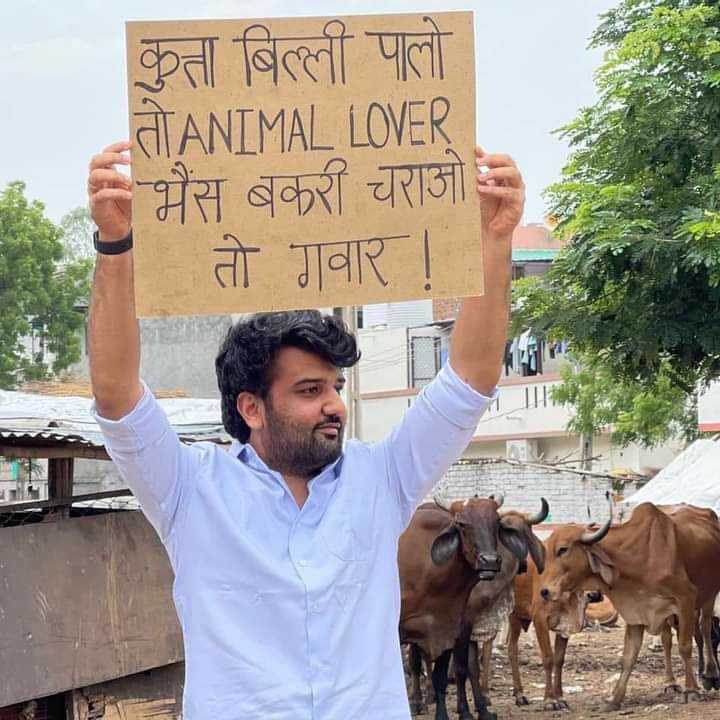 कुत्ता बिल्ली पालो
तो ANIMAL LOVER
भैंस बकरी चराओ
तो गवार !